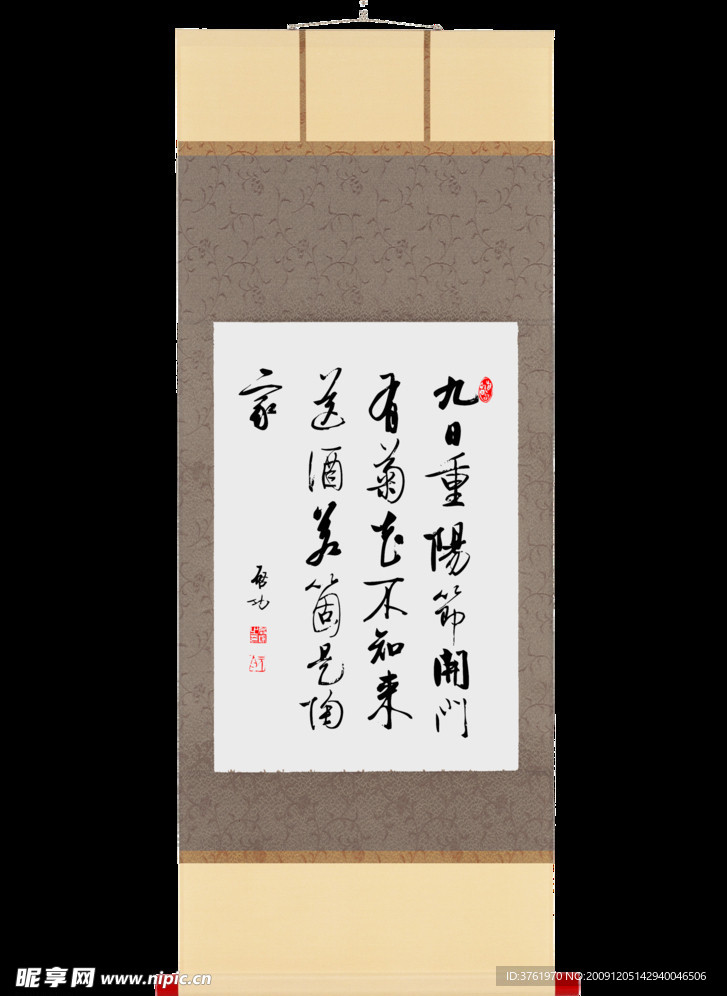 九日重陽節開門
有菊花不知来
送酒若箇是陶
家
啟功
昵享网 www.nipic.cn
ID:3761970 NO:20091205142940046506